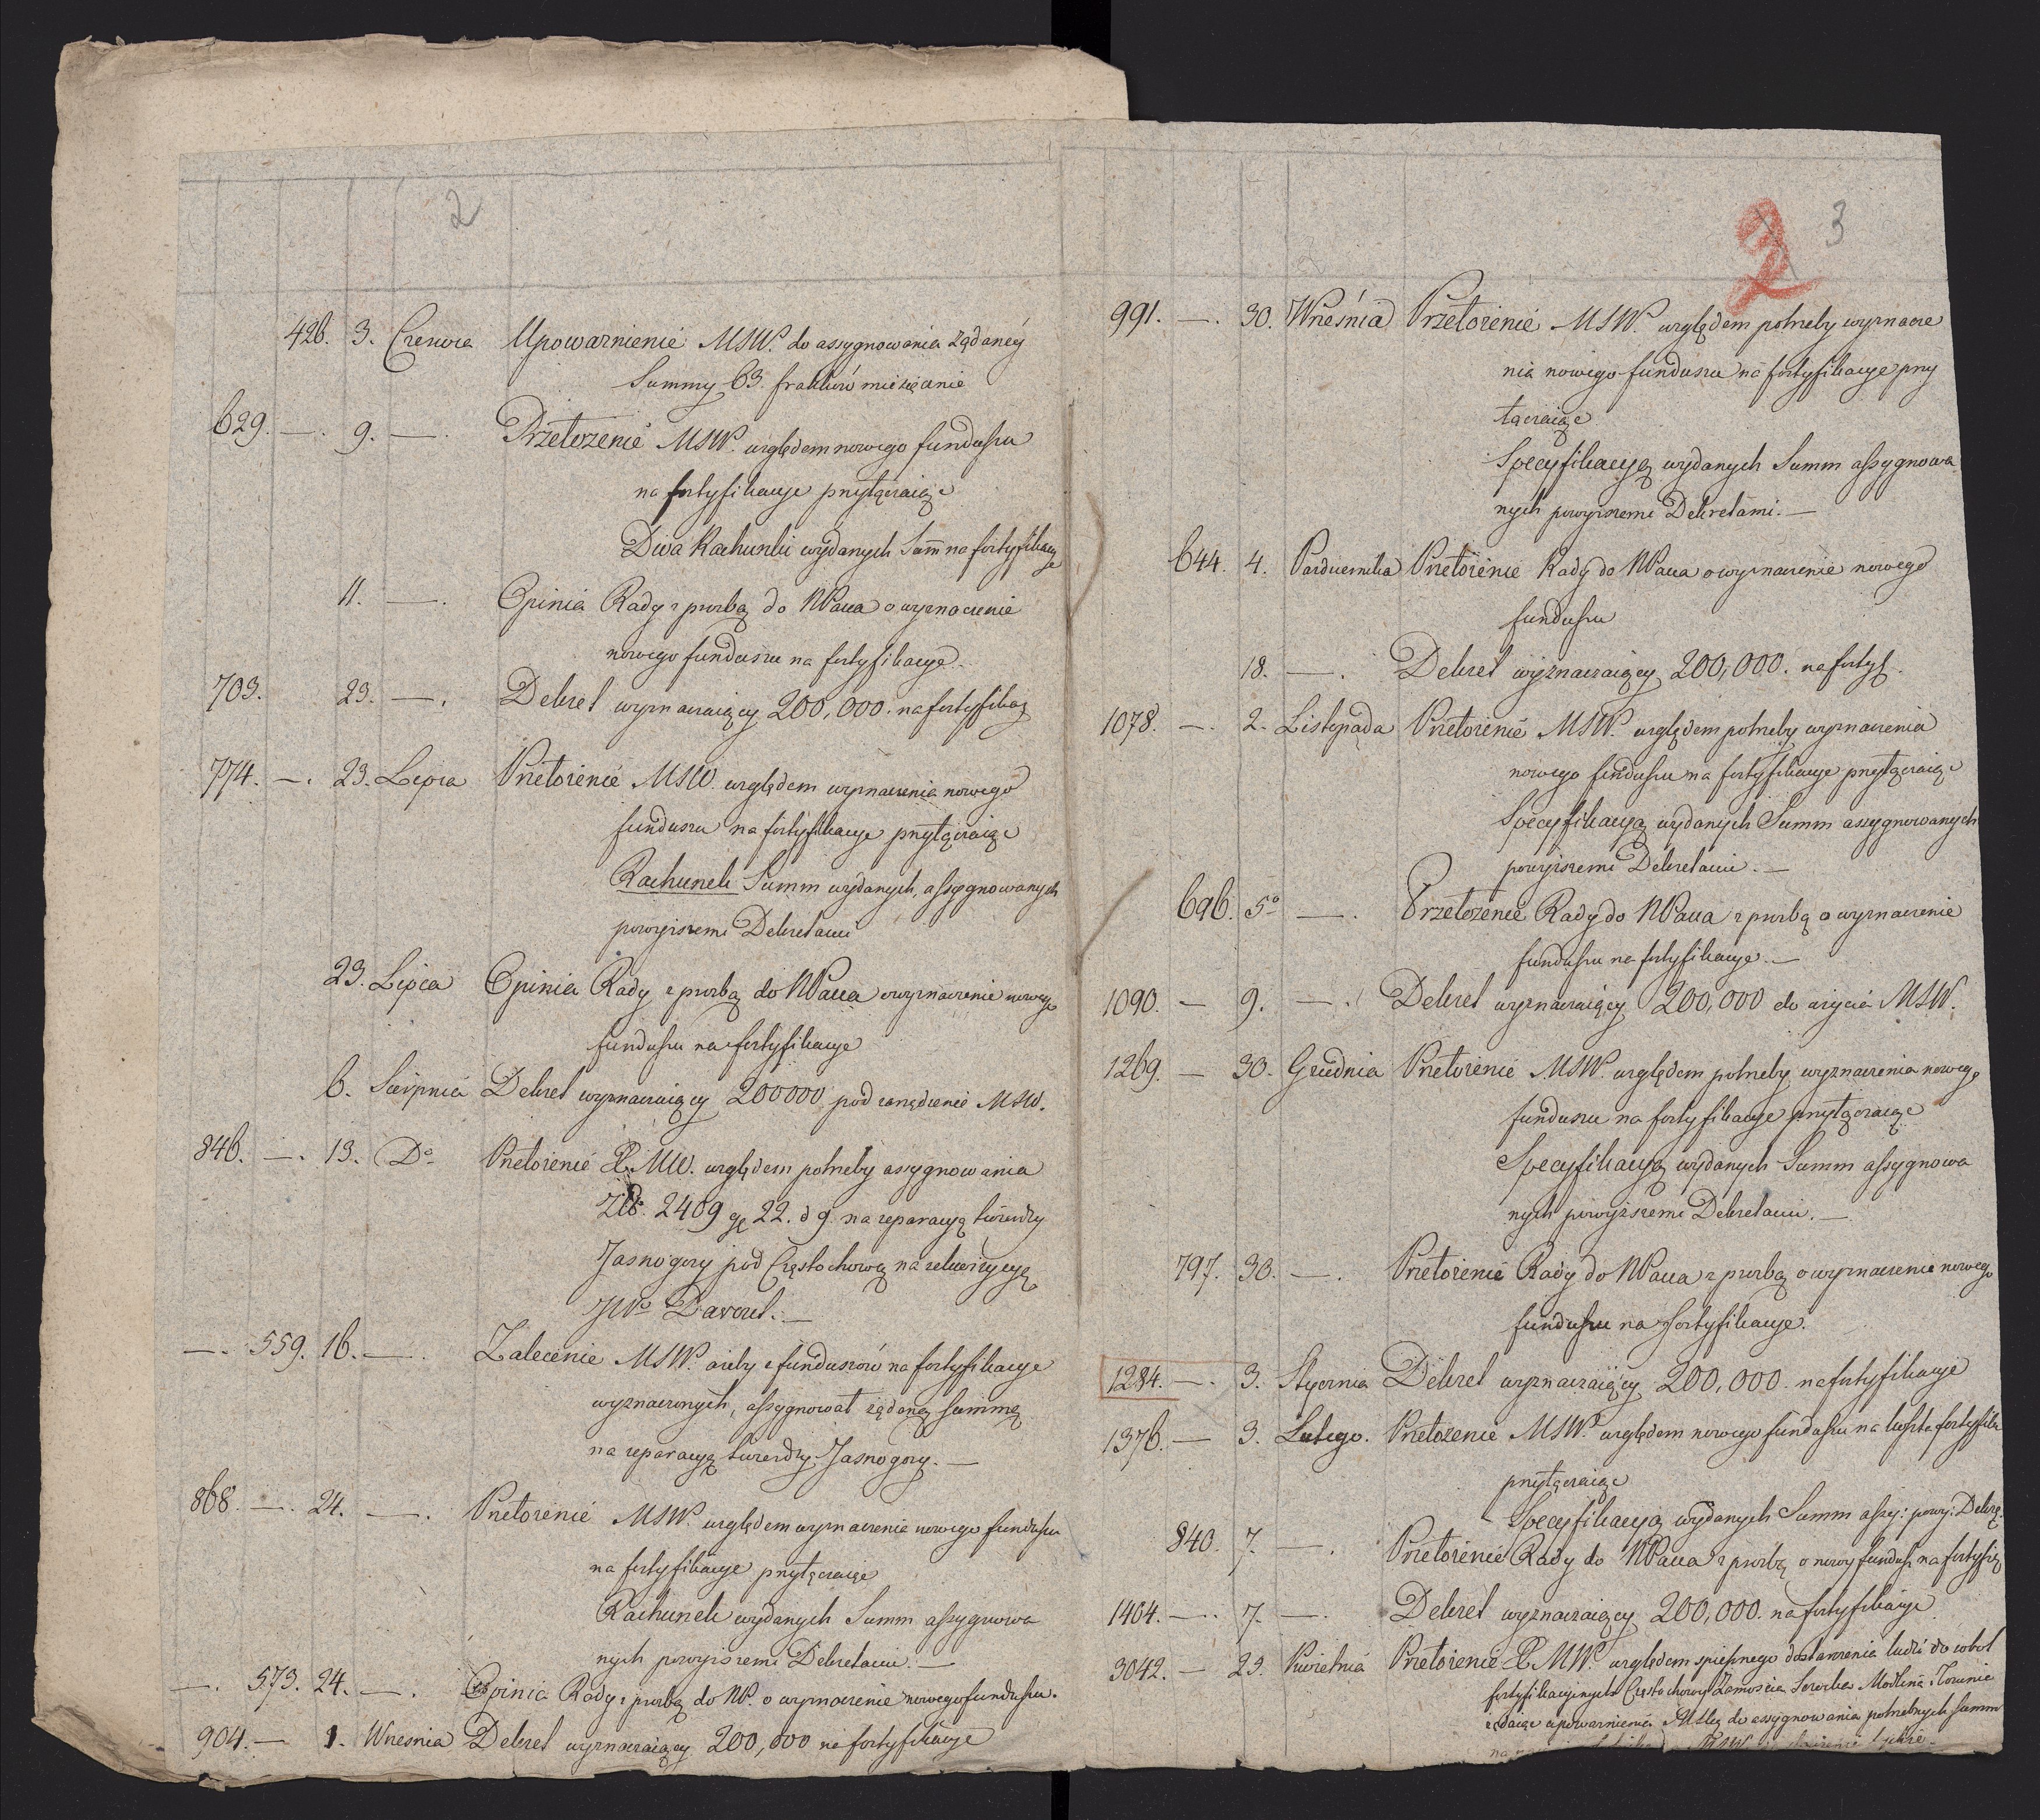 2
426. 3. Czerwca Upoważnienie MSW. do assygnowania żądaney
Summy 63. franków miesięcznie
629. —. 9. —. Przełożenie MSW. względem nowego funduszu
na fortyfikacye przyłączaiąc
Dwa Rachunki wydanych Sum̄ na fortyfikacye
11. —. Opinia Rady z prośbą do NPana o wyznaczenie
nowego funduszu na fortyfikacye.
703. 23. —. Dekret wyznaczaiący 200,000. na fortyfikacye
774. —. 23. Lipca Przełożenie MSW. względem wyznaczenia nowego
funduszu na fortyfikacye przyłączaiąc
Rachunek Summ wydanych, assygnowanych
powyższemi Dekretami
23. Lipca Opinia Rady z prośbą do NPana o wyznaczenie nowego
funduszu na fortyfikacye
6. Sierpnia Dekret wyznaczaiący 200000 pod zarządzenie MSW.
846. —. 13. Do Przełożenie MW. względem potrzeby assygnowania
Złp. 2409 gr 22. d 9. na reparacyą twierdzy
Jasnogory pod Częstochową na rekwizycyą
JWo Davout. —
—. 559. 16. —. Zalecenie MSW. ażeby z funduszów na fortyfikacye
wyznaczonych, assygnował żądaną summę
na reparacyą twierdzy Jasnogory. —
868. —. 24. —. Przełożenie MSW. względem wyznaczenie nowego funduszu
na fortyfikacye przyłączaiąc
Rachunek wydanych Summ assygnowa
nych powyższemi Dekretami. —
—. 573. 24. —. Opinia Rady z prośbą do NP. o wyznaczenie nowego funduszu.
904. — 1. Wrzesnia Dekret wyznaczaiący 200,000 na fortyfikacye
2 3
991. —. 30. Września Przełożenie MSW. względem potrzeby wyznacze
nia nowego funduszu na fortyfikacye przy
łączaiąc
Specyfikacyą wydanych Summ assygnowa
nych powyższemi Dekretami. —
644. 4. Października Przełożenie Rady do NPana o wyznaczenie nowego
funduszu
18. —. Dekret wyznaczaiący 200,000. na fortyf.
1078. —. 2. Listopada Przełożenie MSW. względem potrzeby wyznaczenia
nowego funduszu na fortyfikacye przyłączaiąc
Specyfikacyą wydanych Summ assygnowanych
powyższemi Dekretami. —
696. 5o —. Przełożenie Rady do NPana z prośbą o wyznaczenie
funduszu na fortyfikacye. —
1090. — 9. —. Dekret wyznaczaiący 200,000 do użycia MSW.
1269. — 30. Grudnia Przełożenie MSW. względem potrzeby wyznaczenia nowego
funduszu na fortyfikacye przyłączaiąc
Specyfikacyą wydanych Summ assygnowa
nych powyższemi Dekretami. —
797. 30. —. Przełożenie Rady do NPana z prośbą o wyznaczenie nowego
funduszu na fortyfikacye.
1284. —. 3. Stycznia Dekret wyznaczaiący 200,000. na fortyfikacye
1376. — 3. Lutego. Przełożenie MSW. względem nowego funduszu na fortyfika
przyłączaiąc
Specyfikacyą wydanych Summ assy: powy: Dekrę.
840. 7. —. Przełożenie Rady do NPana z prośbą o nowy fundusz na fortyfik
1404. —. 7. —. Dekret wyznaczaiący 200,000. na fortyfikacye
3042. — 23. Kwietnia Przełożenie MW. względem spiesznego dostawienia ludzi do robot
fortyfikacyinych Częstochowy Zamościa Serocka Modlina i Torunia
żądaiąc upoważnienia do assygnowania potrzebnych summ